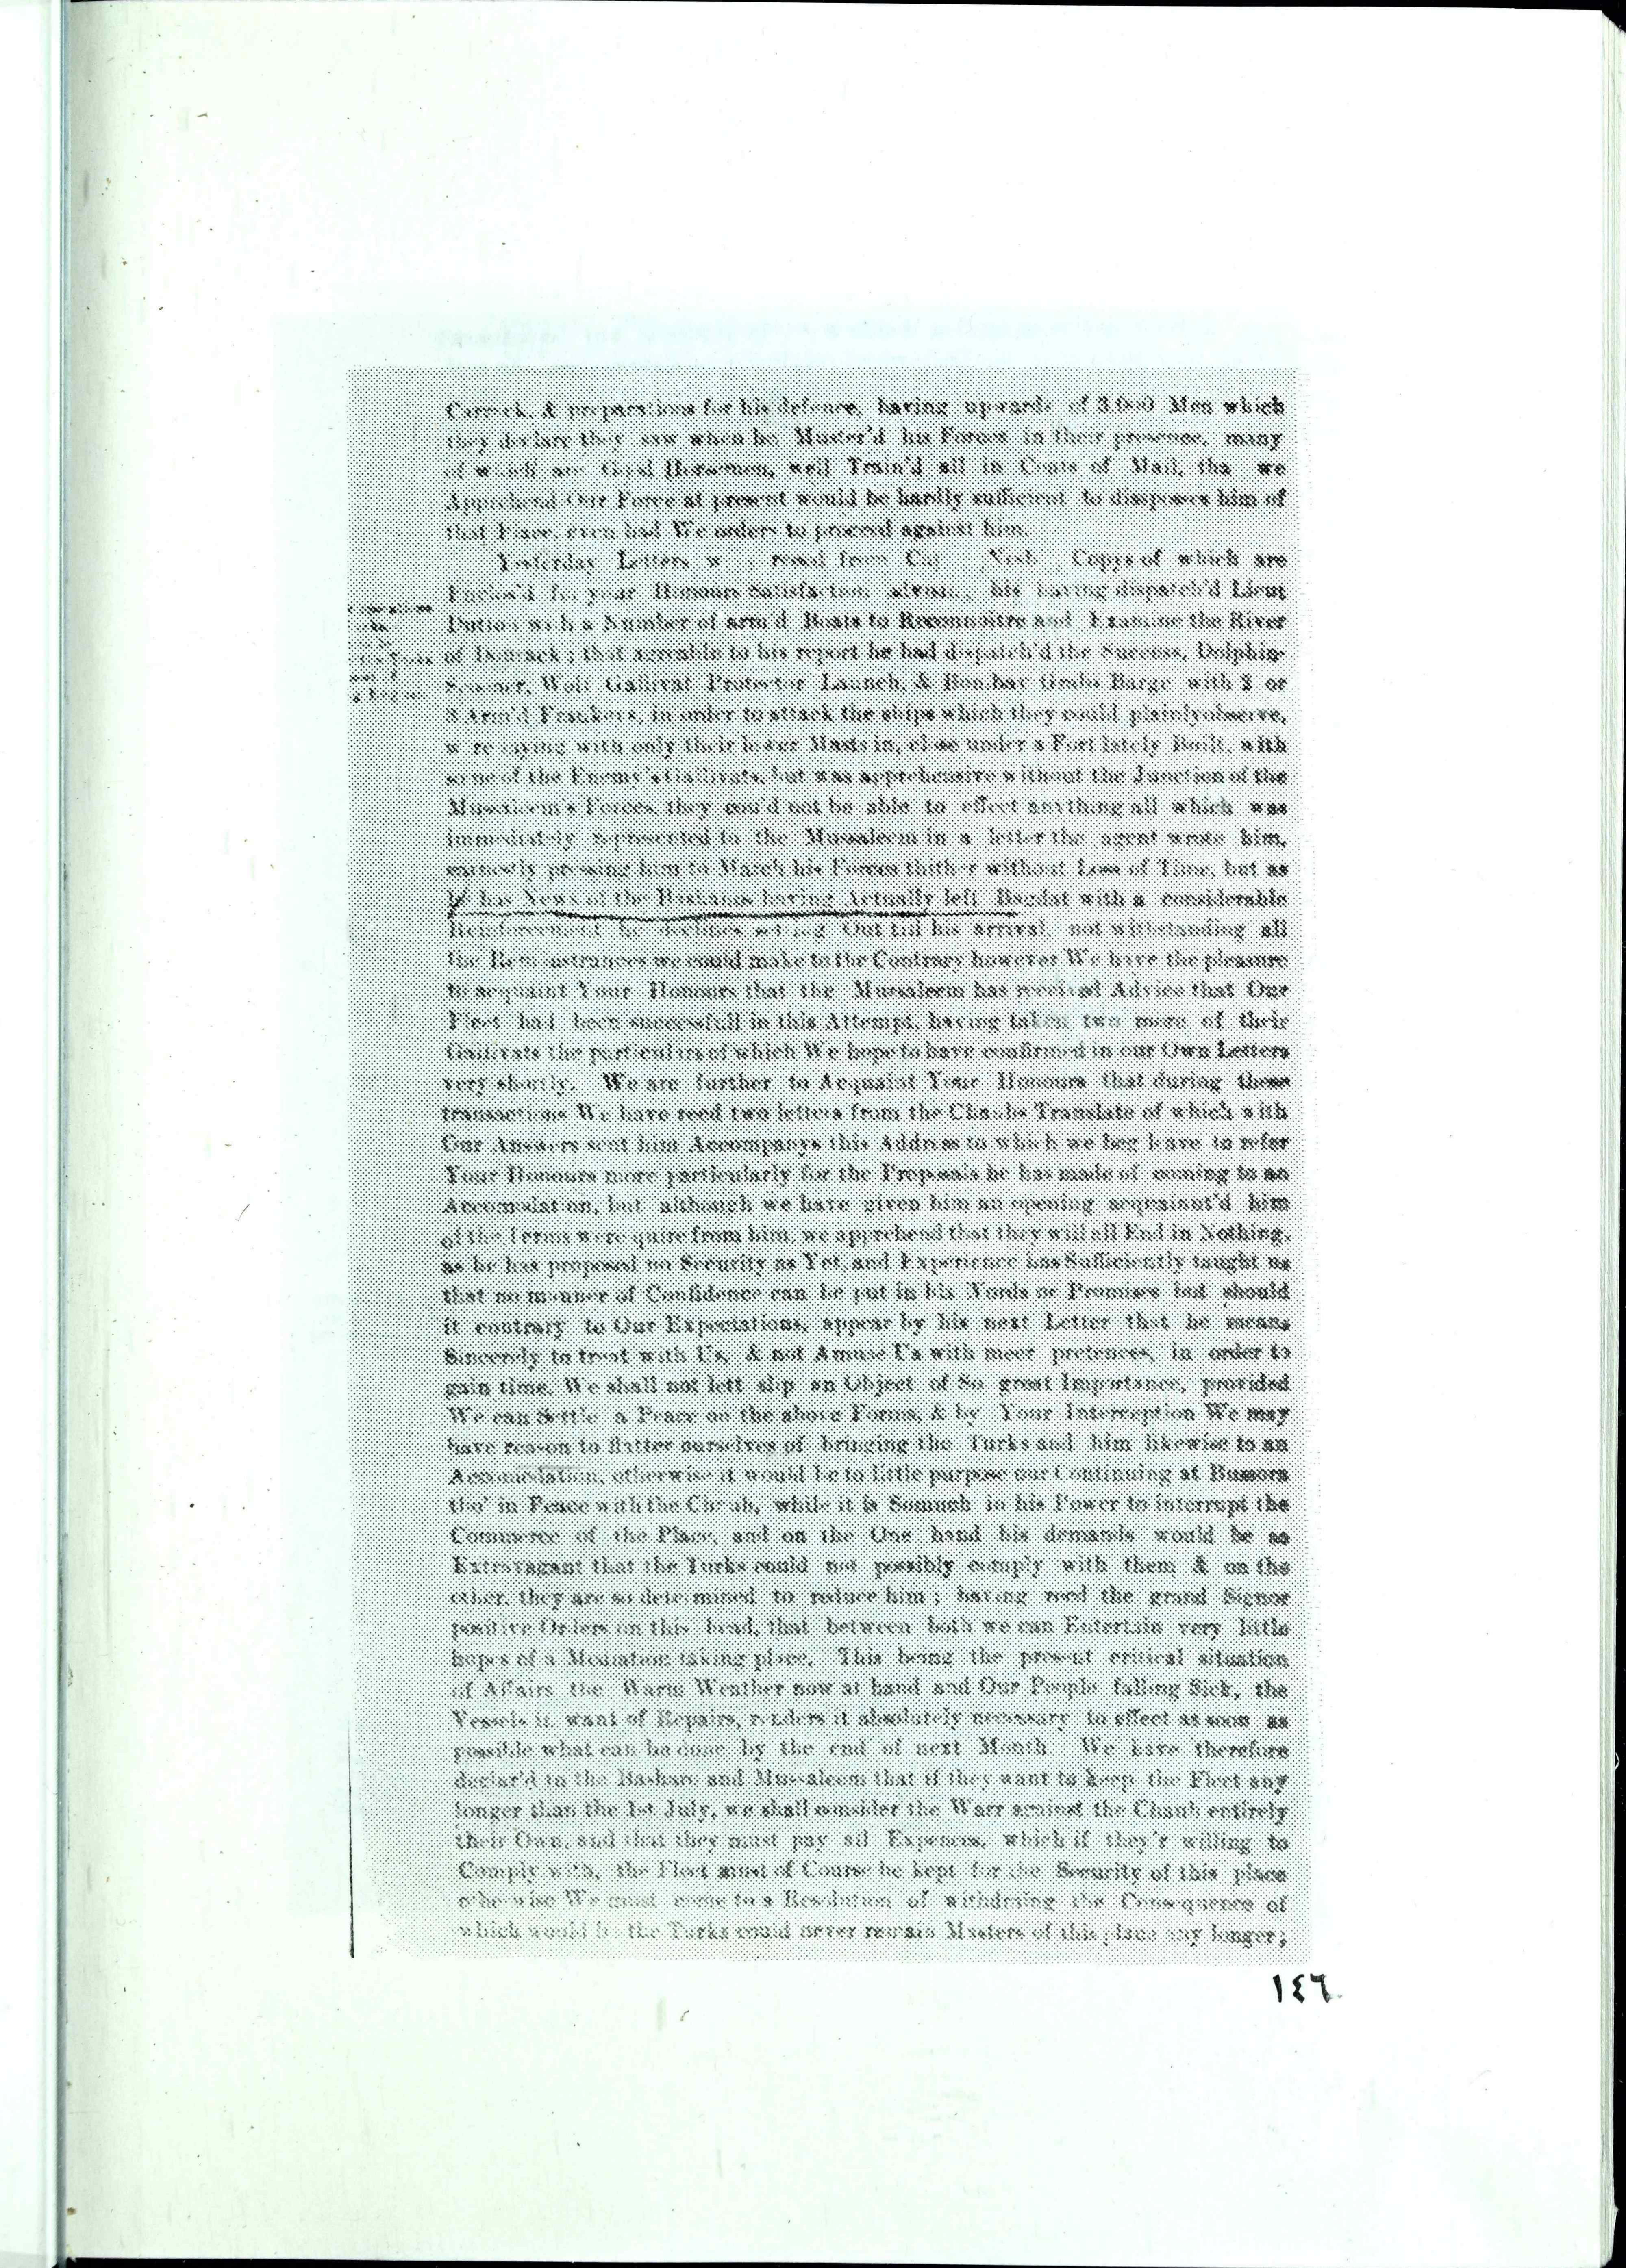 Carrack, & preparations for his defence, having upwards of 3,000 Men which
they declare they saw when he Muster'd his Forces in their presence, many
of which are Good Horsemen, well Train'd all in Coats of Mail, tha we
Apprehend Our Force at present would be hardly sufficient to disspossess him of
that Place, even had We orders to proceed against him.
Yesterday Letters w recd from Nesb Copys of which are
Enclos'd for your Honours Satisfaction advising his having dispatch'd Lieut
with a Number of arm'd Boats to Reconnoitre and Examine the River
of ; that agreable to his report he had dispatch'd the Success, Dolphin
Scooner, Wolf Gallivat Protector Launch, & Bombay Grabs Barge with 2 or
3 Arm'd Frankers, in order to attack the ships which they could plainly observe,
w re laying with only their lower Masts in, close under a Fort lately Built, with
some of the Enemy's Gallivats, but was apprehensive without the Junction of the
Mussaleem's Forces, they cou'd not be able to effect anything all which was
immediately represented to the Mussaleem in a letter the agent wrote him,
earnestly pressing him to March his Forces thither without Loss of Time, but as
he has News of the Bashaws having Actually left Bagdat with a considerable
Reinforcement he declines setting Out till his arrival, not withstanding all
the Remonstrances we could make to the Contrary however We have the pleasure
to acquaint Your Honours that the Mussaleem has received Advice that Our
Fleet had been successfull in this Attempt, having taken two more of their
Gallivats the particulars of which We hope to have confirmed in our Own Letters
very shortly. We are further to Acquaint Your Honours that during these
transactions We have recd two letters from the Chaub Translate of which with
Our Answers sent him Accompanys this Address to which we beg leave to refer
Your Honours more particularly for the Proposals he has made of coming to an
Accomodation, but although we have given him an opening acquaint'd him
of the Terms were quire from him, we apprehend that they will all End in Nothing,
as he has proposed no Security as Yet, and Experience has Sufficiently taught us
that no manner of Confidence can be put in his Words or Promises but should
it contrary to Our Expectations, appear by his next Letter that he means
Sincerely to treat with Us, & not Amuse Us with meer pretences, in order to
gain time, We shall not lett slip an Object of So great Importance, provided
We can Settle a Peace on the above Forms, & by Your Interception We may
have reason to flatter ourselves of bringing the Turks and him likewise to an
Accomodation, otherwise it would be to little purpose our Continuing at Bussora
tho' in Peace with the Chaub, while it is Somuch in his Power to interrupt the
Commerce of the Place, and on the One hand his demands would be so
Extravagant that the Turks could not possibly comply with them & on the
other, they are so determined to reduce him ; having recd the grand Signor
positive Orders on this head, that between both we can Entertain very little
hopes of a Mediation taking place. This being the present critical situation
of Affairs the Warm Weather now at hand and Our People falling Sick, the
Vessels in want of Repairs, renders it absolutely necessary to effect as soon as
possible what can be done by the end of next Month We have therefore
declar'd to the Bashaw and Mussaleem that if they want to keep the Fleet any
longer than the 1st July, we shall consider the Warr against the Chaub entirely
their Own, and that they must pay all Expences, which if they'r willing to
Comply with, the Fleet must of Course be kept for the Security of this place
otherwise We must come to a Resolution of withdraing the Consequence of
which would be the Turks could never remain Masters of this place any longer;
١٤٦